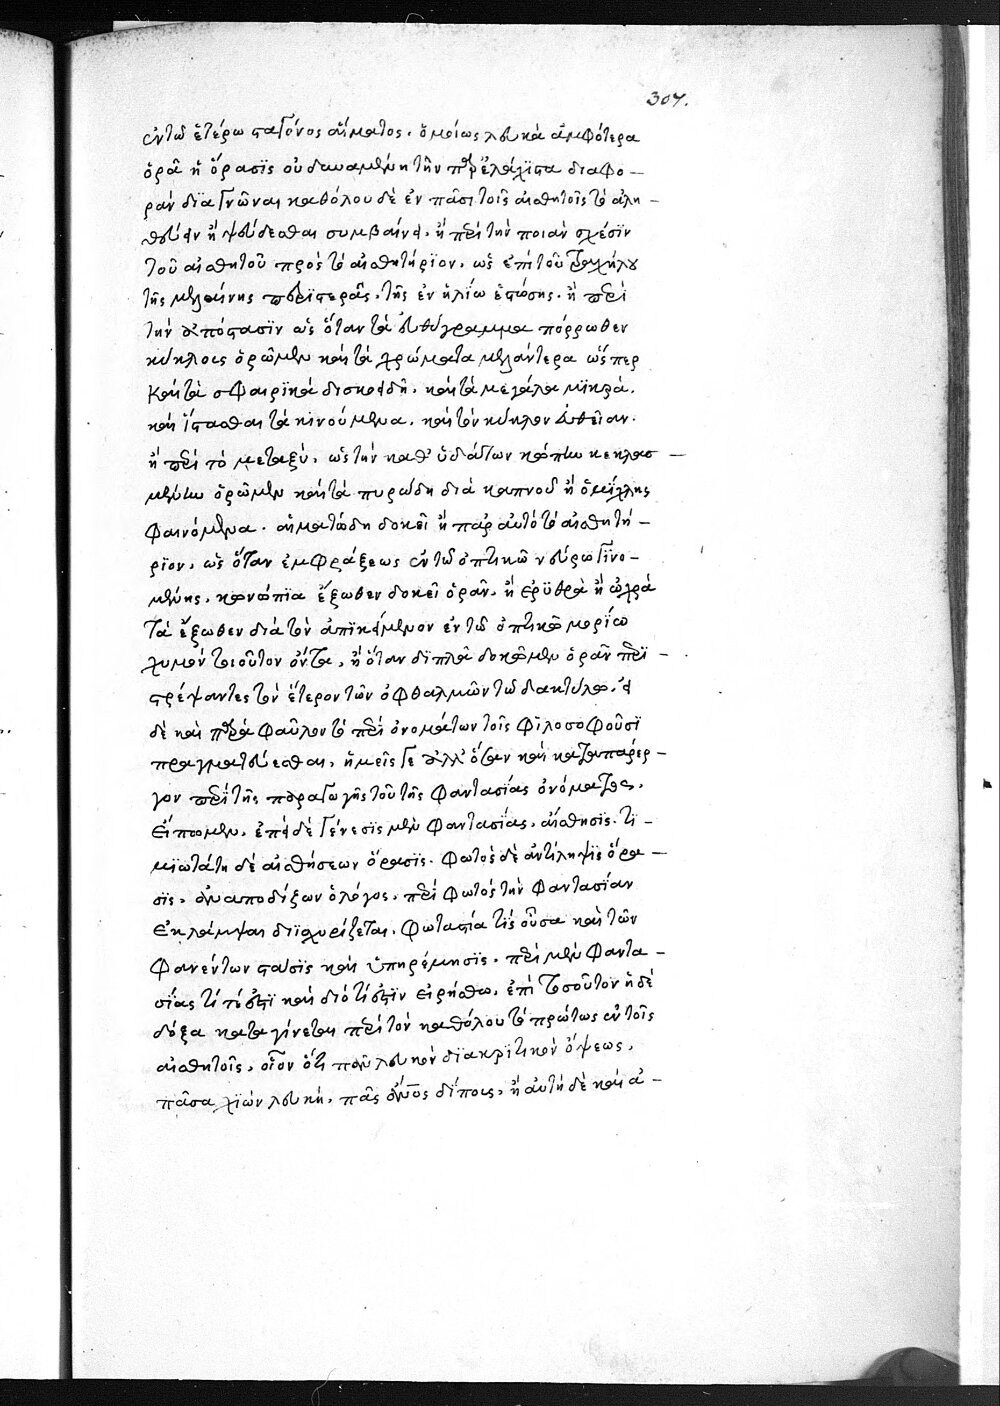 307.
ἐν τῷ ἑτέρῳ σταγόνος αἵματος. ὁμοίως λευκὰ ἀμφότερα
ὁρᾷ ἡ ὅρασϊς οὐ δυναμένη τὴν παρ' ἐλάχϊστα διαφο-
ρὰν διαγνῶναι καθόλου δὲ ἐν πᾶσι τοῖς αἰσθητοῖς τὸ ἀλη-
θεύειν ἢ ψεύδεσθαι συμβαίνει. ἢ περὶ τὴν ποιὰν σχέσϊν
τοῦ αἰσθητοῦ πρὸς τὸ αἰσθητήρϊον. ὡς ἐπὶ τοῦ τραχήλου
τῆς μελαίνης περϊστερᾶς. τῆς ἐν ἡλίῳ ἑστώσης. ἢ περὶ
τὴν ἀπόστασϊν ὡς ὅταν τὰ εὐθύγραμμα πόρρωθεν
κύκλους ὁρῶμεν καὶ τὰ χρώματα μελάντερα ὥσπερ
καὶ τὰ σφαιρϊκὰ δισκοειδῆ. καὶ τὰ μεγάλα μϊκρά.
καὶ ἵστασθαι τὰ κινούμενα. καὶ τὸν κύκλον εὐθεῖαν.
ἢ περὶ τὸ μεταξὺ. ὡς τὴν καθ' ὑδάτων κώπην κεκλασ-
μένην ὁρῶμεν καὶ τὰ πυρώδη διὰ καπνοῦ ἢ ὁμίχλης
φαινόμενα. αἱματώδη δοκεῖ ἢ παρ' αὐτὸ τὸ αἰσθητή-
ρϊον. ὡς ὅταν ἐμφράξεως ἐν τῷ ὀπτικῷ νεύρῳ γϊνο-
μένης. κωνώπϊα ἔξωθεν δοκεῖ ὁρᾶν. ἢ ἐρϋθρὰ ἢ ὠχρὰ
τὰ ἔξωθεν διὰ τὸν ἀπϊκείμενον ἐν τῷ ὀπτικῷ μορίῳ
χυμὸν τοιοῦτον ὄντα. ἢ ὅταν διπλᾶ δοκῶμεν ὁρᾶν περϊ-
στρέψαντες τὸν ἕτερον τῶν ὀφθαλμῶν τῷ δακτύλῳ. εἰ
δὲ καὶ παρὰ φαῦλον τὸ περὶ ὀνομάτων τοῖς φϊλοσοφοῦσϊ
πραγματεύεσθαι. ἡμεῖς γε ἀλλ' ὅταν καὶ κατὰ πάρερ-
γον περὶ τῆς παραγωγῆς τοῦ τῆς φαντασίας ὀνόματος.
εἴπωμεν. ἐπεὶ δὲ γένεσϊς μὲν φαντασίας. αἴσθησϊς. τϊ-
μϊωτάτη δὲ αἰσθήσεων ὅρασϊς. φωτὸς δὲ ἀντίληψϊς ὅρα-
σϊς. συναποδείξων ὁ λόγος. περὶ φωτὸς τὴν φαντασίαν
ἐκλάμψαι διϊσχυρίζεται. φωταστία τὶς οὖσα καὶ τῶν
φανέντων στάσϊς καὶ ὑπηρέμησϊς. περὶ μὲν φαντα-
σίας τί τέ ἐστϊ καὶ διότι ἐστϊν εἰρήσθω. ἐπὶ τοσοῦτον ἡ δὲ
δόξα καταγίνεται περὶ τὸν καθόλου τὸ πρώτως ἐν τοῖς
αἰσθητοῖς. οἷον ὅτι πᾶν λευκὸν δϊακρϊτικὸν ὄψεως.
πᾶσα χϊὼν λευκή. πᾶς ἄνος δίπους. ἡ αὐτὴ δὲ καὶ ἁ-